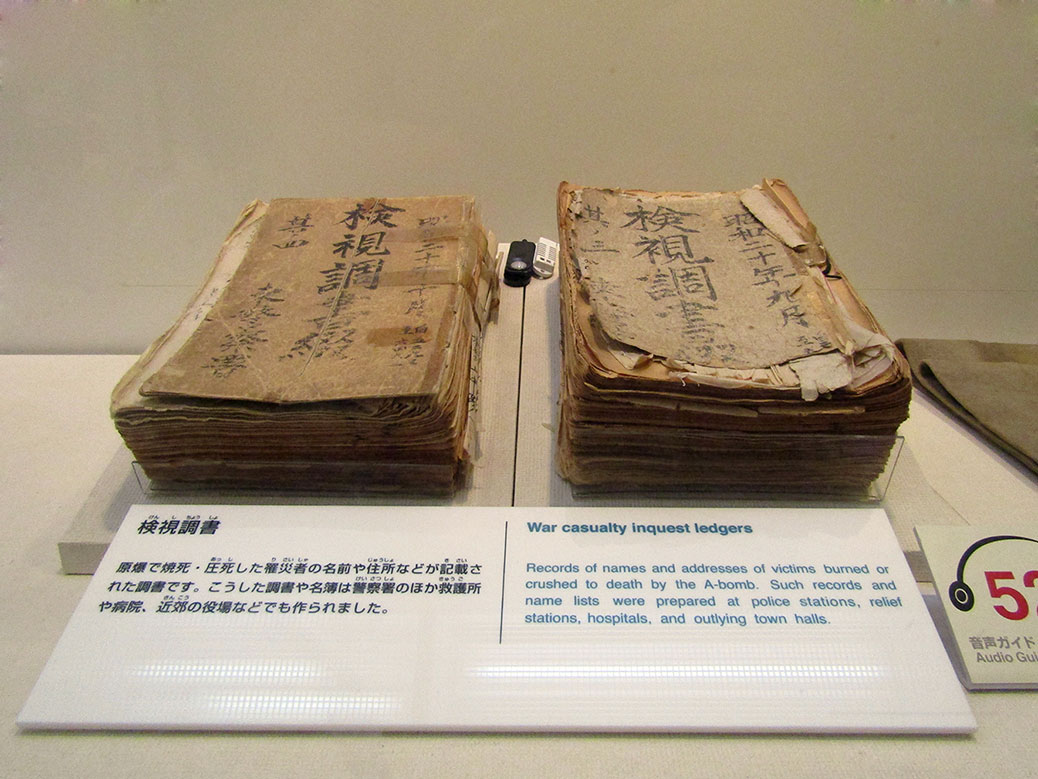 検視調書
其ノ四
昭和二十年九月
検視調書
其ノ三
検視調書
けん し ちょう しょ
原爆で焼死・圧死した罹災者の名前や住所などが記載さ
れた調書です。こうした調書や名簿は警察署のほか救護所
や病院、近郊の役場などでも作られました。
War casualty inquest ledgers
Records of names and addresses of victims burned or
crushed to death by the A-bomb. Such records and
name lists were prepared at police stations, relief
stations, hospitals, and outlying town halls.
52
音声ガイド
Audio Gui